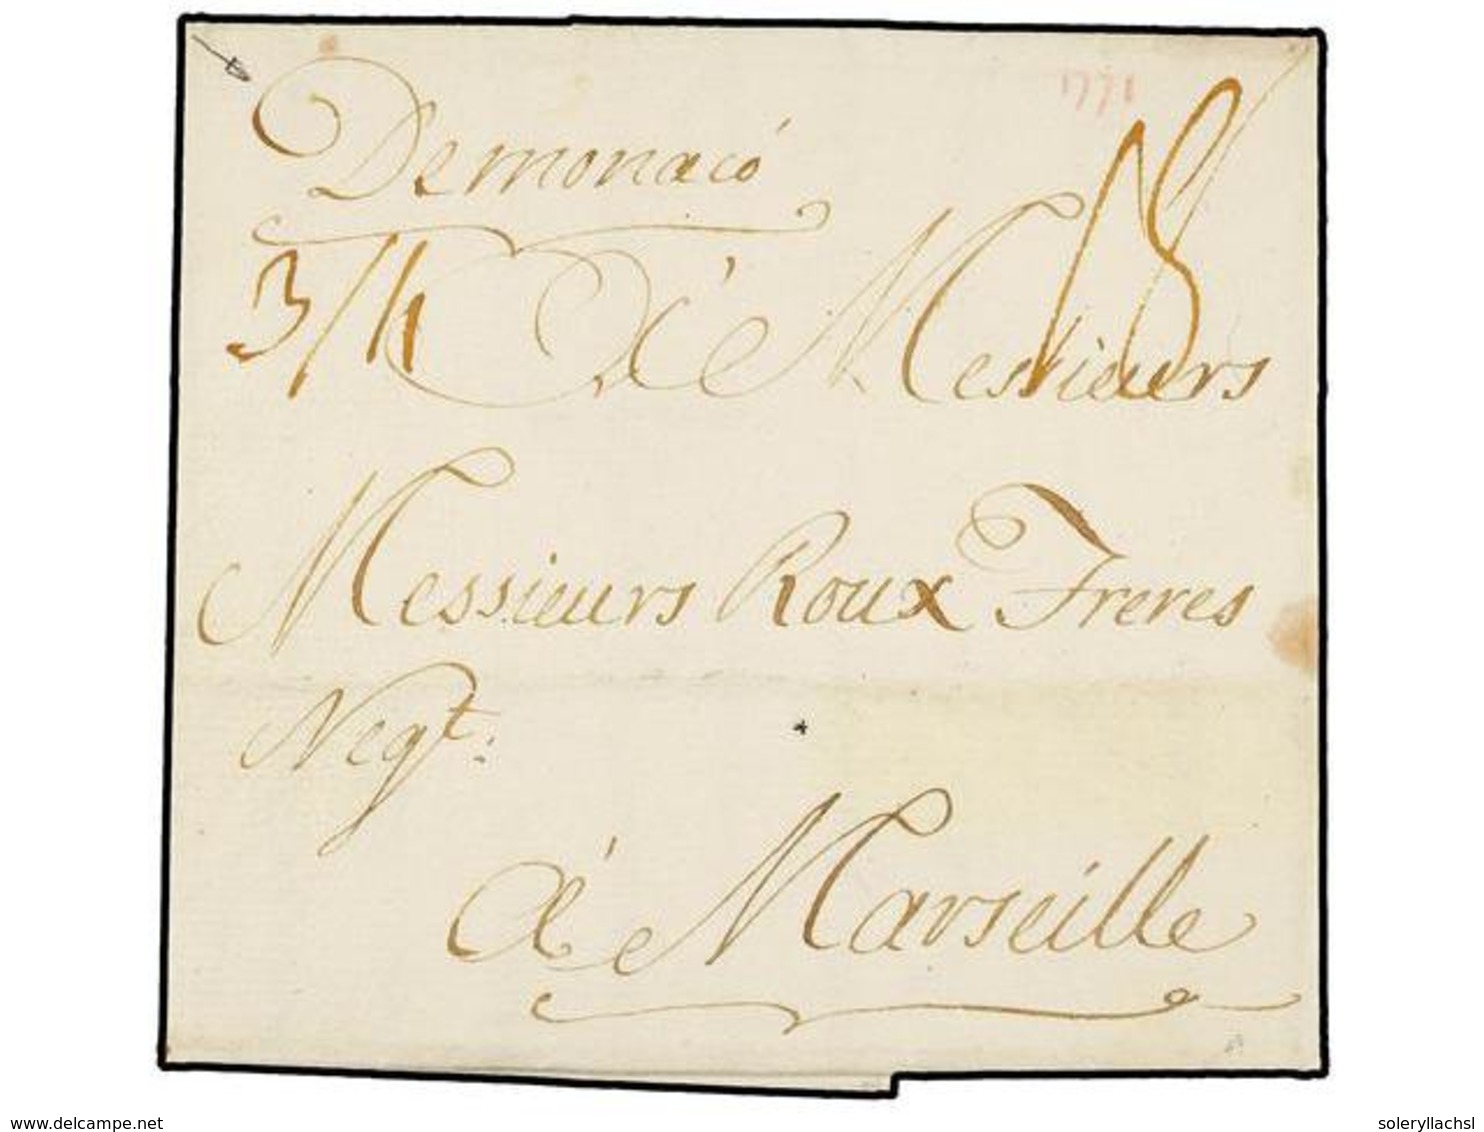 1771
De monacó
18
3/4
À Messieurs
Messieurs Roux Freres
Negt:
À Marseille
www.delcampe.net
soleryllachsl